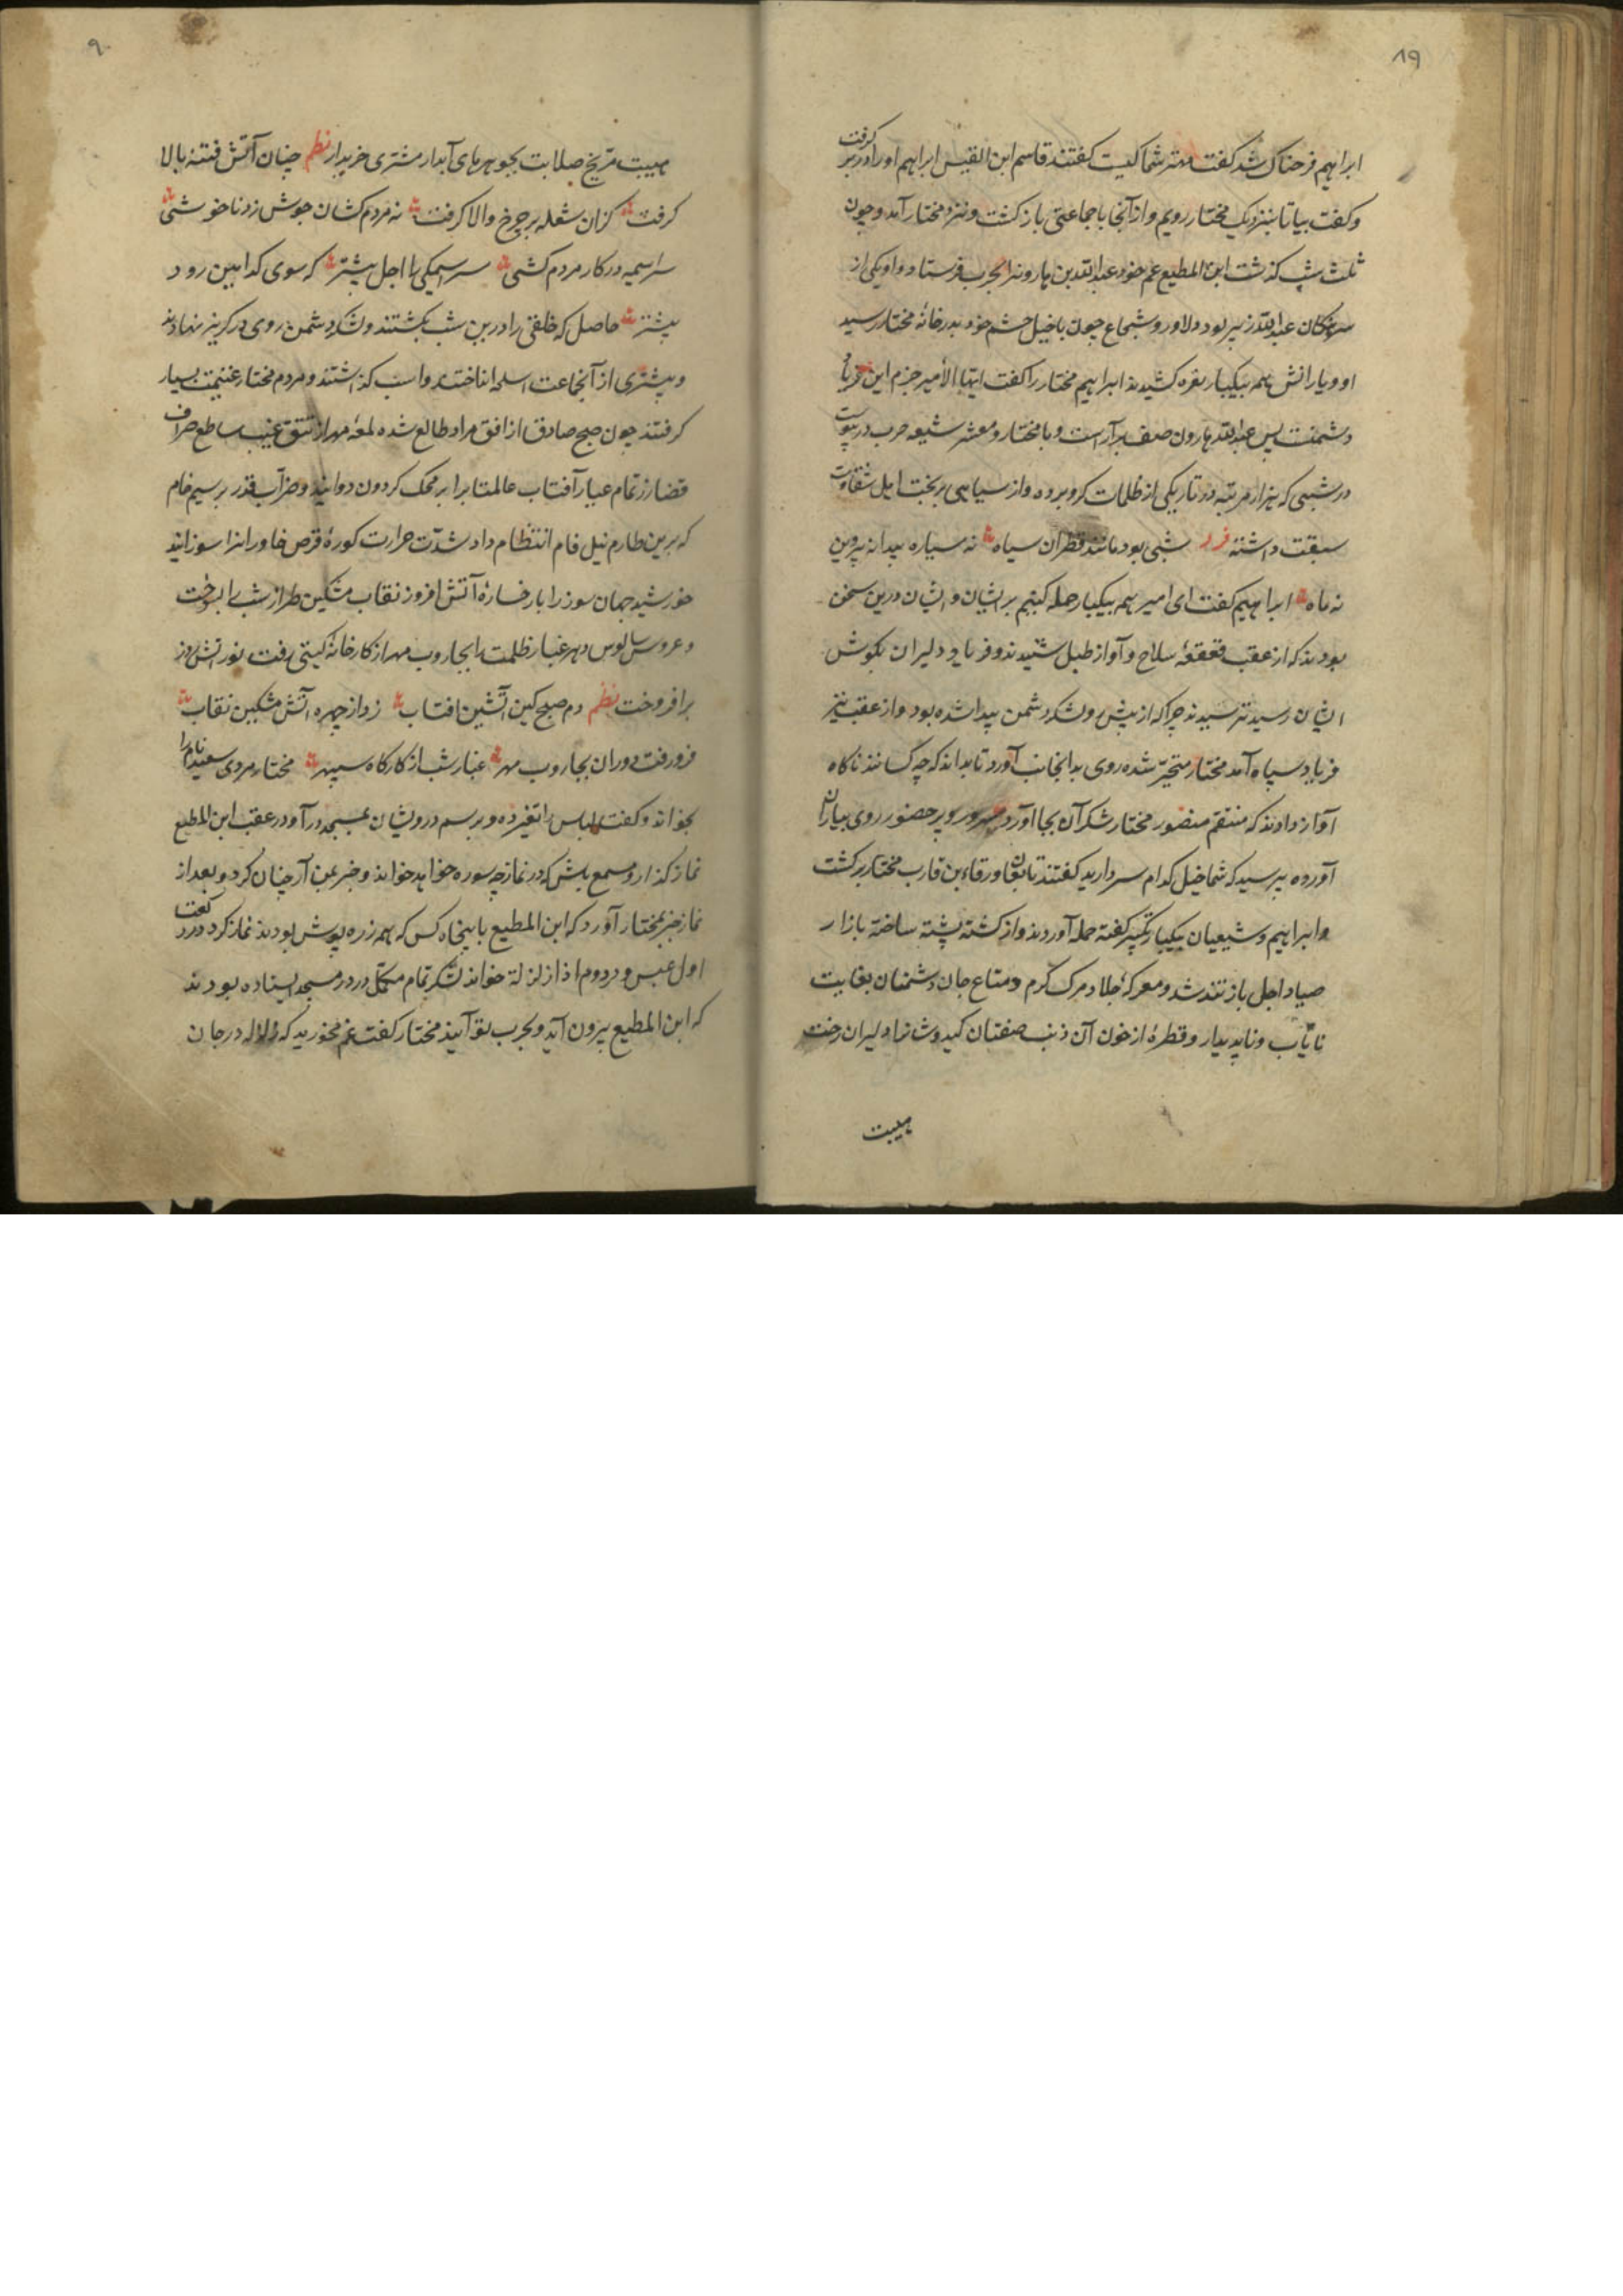 ۸۹
ابراهیم فرحناک شد گفت مهتر شما کیست گفتند قاسم ابن القیس ابراهیم او را در بر گرفت
و گفت بیا تا بنزدیک مختار رویم و از آنجا با جماعتی باز گشت و نزد مختار آمد و چون
ثلث شب گذشت ابن المطیع عم خود عبدالله بن هارون را بحرب فرستاد و او یکی از
عبدالله زبیر بود و دلاور و شجاع چون با خیل حشم خود بدر خانهٔ مختار رسید
او و یارانش همه بیکبار نعره کشیدند ابراهیم مختار را گفت ایها الأمیر جزم این
دشمنست پس عبدالله هارون صف بر آراست و با مختار و معشر شیعه حرب در پیوست
در شبی که هزار مرتبه در تاریکی از ظلمات گرو برده و از سیاهی بر بخت اهل شقاوت
سبقت داشته فرد شبی بود مانند قطران سیاه نه سیاره پیدا نه پروین
نه ماه ابراهیم گفت ای امیر همه بیکبار حمله کنیم بر ایشان و ایشان درین سخن
بودند که از عقب قعقعهٔ سلاح و آواز طبل شنیدند و فریاد دلیران بگوش
ایشان رسید ترسیدند چرا که از پیش رو لشکر دشمن پیدا شده بود و از عقب نیز
فریاد سپاه آمد مختار متحیر شده روی بدانجانب آورد تا بداند که چه کسانند ناگاه
آواز دادند که منتقم منصور مختار شکر آن بجا آورد روی بیاران
آورده بپرسید که شما خیل کدام سردارید گفتند تابعان ورقاء بن قارب مختار برگشت
و ابراهیم و شیعیان بیکبار تکبیر گفته حمله آوردند و از کشته پشته ساخته بازار
صیاد اجل باز تند شد و معرکهٔ جلاد مرگ گرم و متاع جان دشمنان بغایت
نایاب و ناپدیدار و قطرهٔ از خون آن صفتان دلیران
هیبت
۹۰
هیبت مریخ صلابت بجوهرهای آبدار مشتری خریدار نظم چنان آتش فتنه بالا
گرفت کزان شعله بر چرخ والا گرفت نه مردم کشان جوش زد ناخوشی
سراسیمه در کار مردم کشی سراسیمگی با اجل بیشتر که سوی کدامین رود
پیشتر حاصل که خلقی را درین شب بکشتند و لشکر دشمن روی در گریز نهادند
و بیشتری از آنجماعت اسلحه انداختند و اسب گذاشتند و مردم مختار غنیمت بسیار
گرفتند چون صبح صادق از افق مراد طالع شده لمعهٔ مهر از تتق غیب ساطع صراف
قضا زر تمام عیار آفتاب عالمتاب را بر محک گردون دوانید و ضراب قدر بر سیم خام
که برین طارم نیل فام انتظام داد شدت حرارت کورهٔ قرص خاور انرا سوزانید
خورشید جهان سوز را با رخسارهٔ آتش افروز نقاب مشکین طراز شب را بسوخت
و عروس سالوس دهر غبار ظلمت را بجاروب مهر از کارخانهٔ گیتی رفت نور آتش روز
برافروخت نظم دم صبح کین آتشین افتاب زد از چهره آتش مشکین نقاب
فرو رفت دوران بجاروب مهر غبار شب از کارگاه سپهر مختار مردی سعید نام را
بخواند و گفت لباس را تغیر ده و برسم درویشان بمسجد در آ و در عقب ابن المطیع
نماز گذار و مسمع باش که در نماز چه سوره خواهد خواند و خبر بمن آر چنان کرد و بعد از
نماز خبر بمختار آورد که ابن المطیع با پنجاه کس که همه زره پوش بودند نماز کرد در رکعت
اول عبس و در دوم اذا زلزلة خواند لشکر تمام مکمل در در مسجد ایستاده بودند
که ابن المطیع بیرون آید و بحرب تو آیند مختار گفت غم مخورید که زلاله در جان